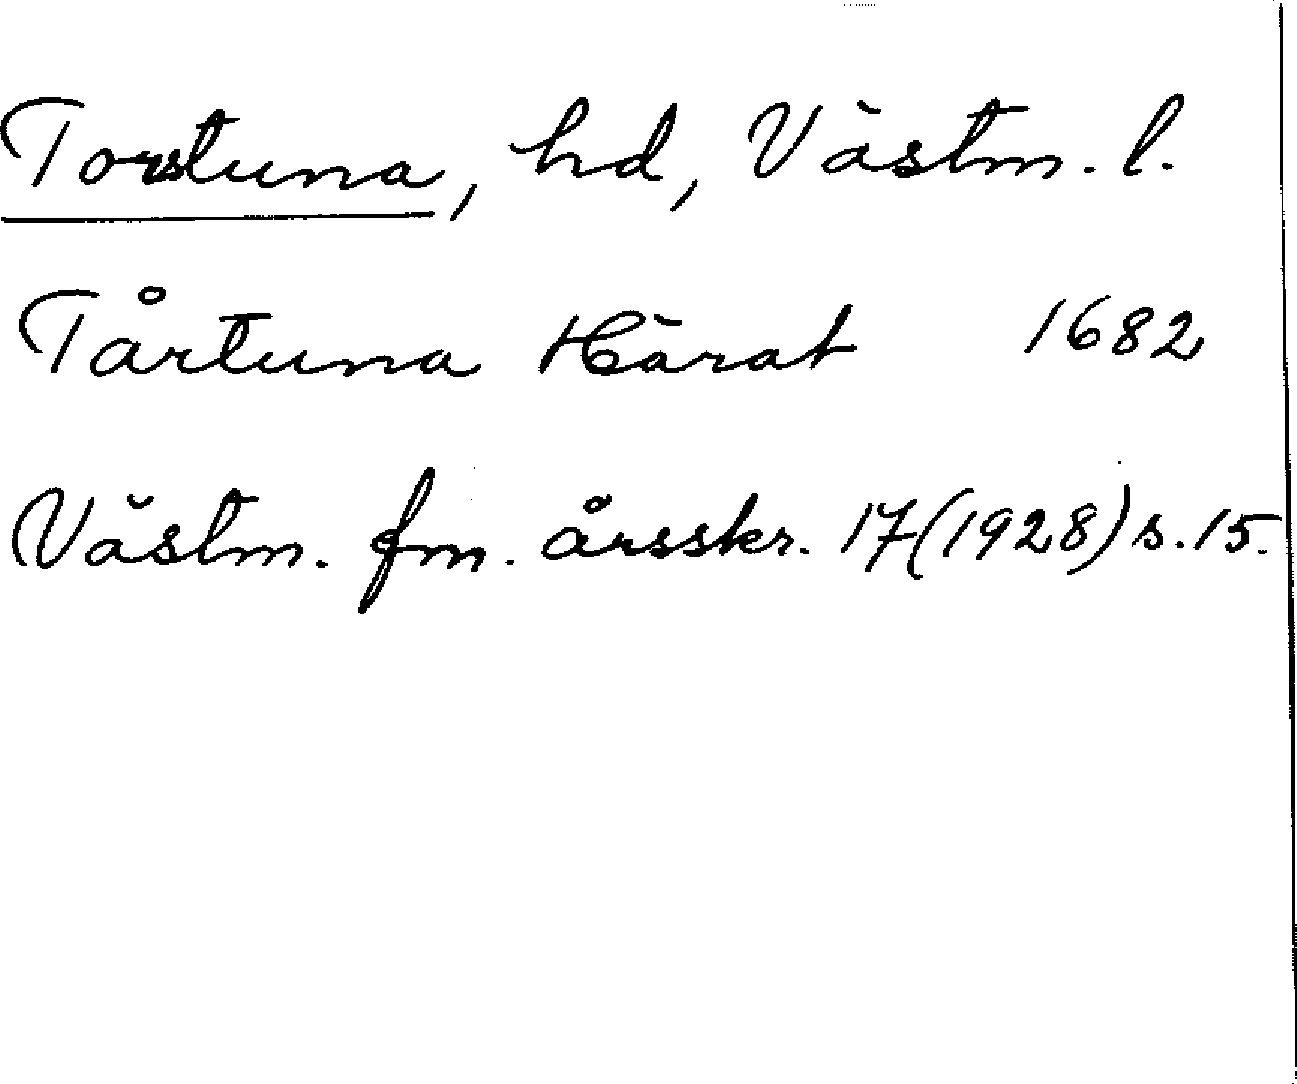 Torstuna, hd, Västm. l.
Tårtuna Härat 1682
Västm. fm. årsskr. 17 (1928) s. 15.